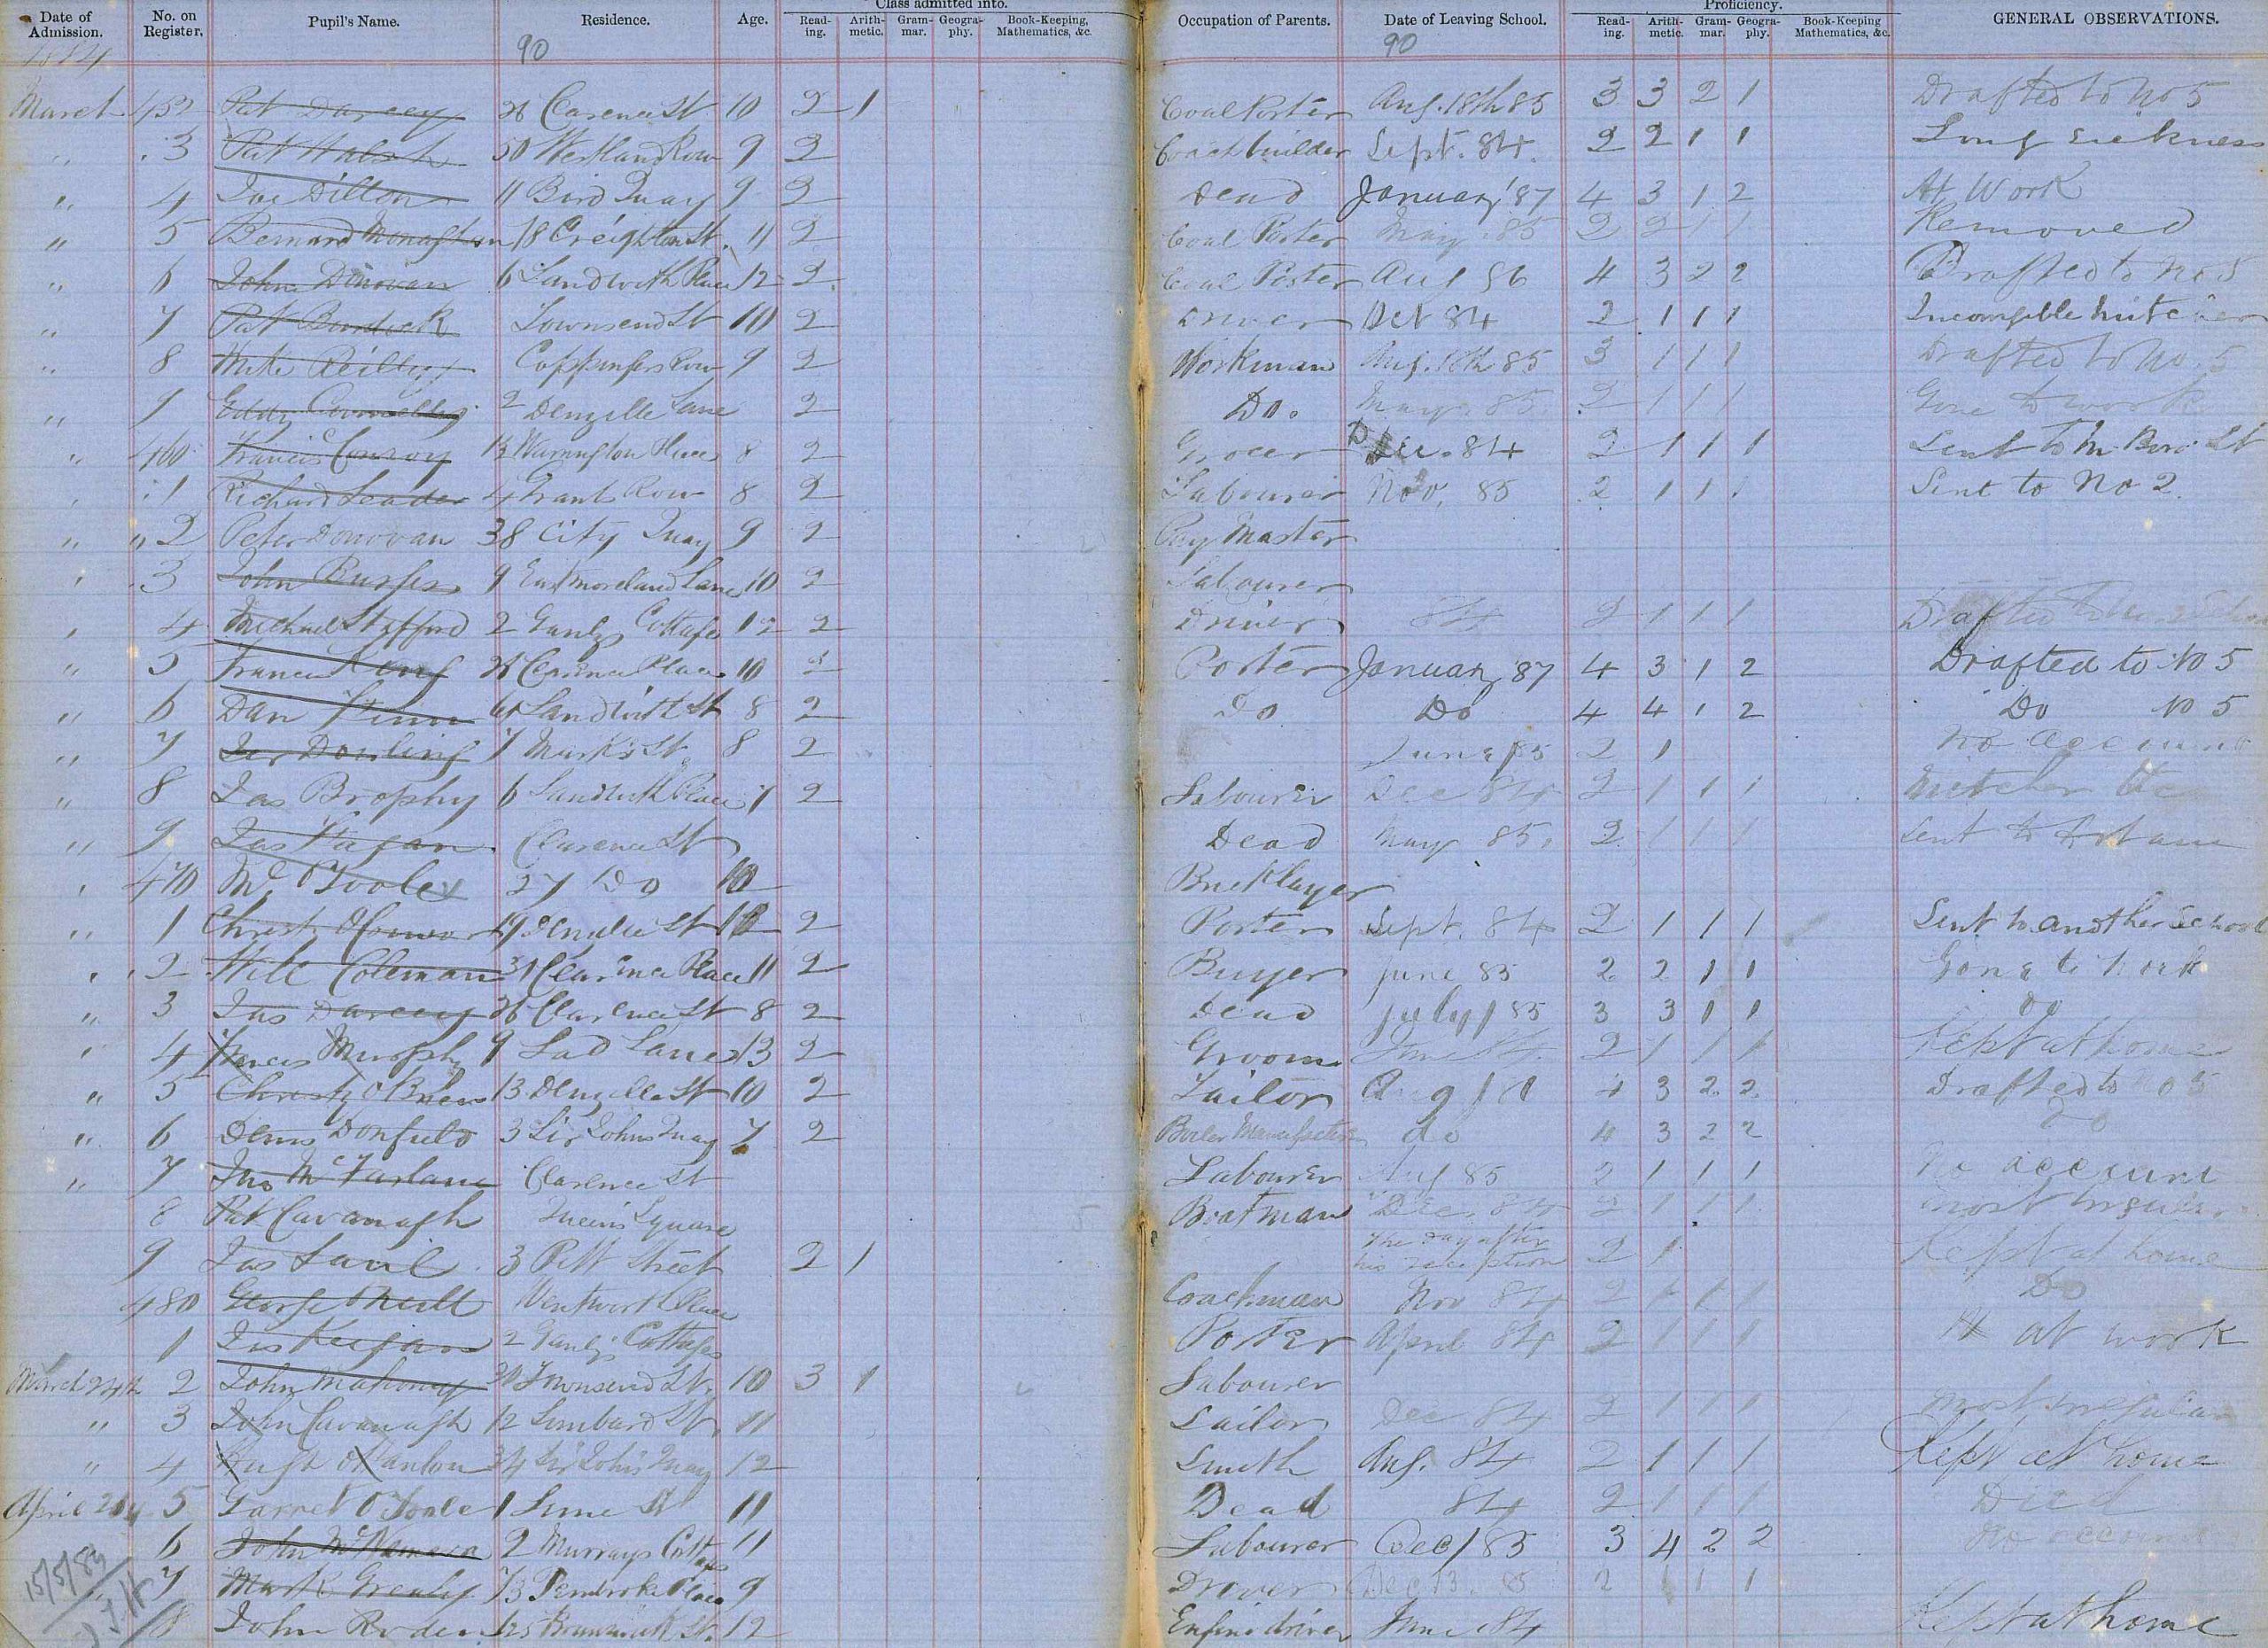 Date of Admission. No. on Register. Pupil's Name. Residence. Age. Class admitted into. Reading. Arithmetic. Grammar. Geography. Book-Keeping, Mathematics, &c. Occupation of Parents. Date of Leaving School. Proficiency. Reading. Arithmetic. Grammar. Geography. Book-Keeping Mathematics, &c. GENERAL OBSERVATIONS.
1884 90 90
March 452 Pat Darcey 26 Clarence St 10 2 1 Coal Porter Aug. 18th 85 3 3 2 1 Drafted to No 5
" 3 Pat Walsh 50 Westland Row 9 2 Coachbuilder Sept. 84. 2 2 1 1 Long sickness
" 4 Joe Dillon 11 Bird Quay 9 2 Dead January '87 4 3 1 2 At Work
" 5 Bernard Monaghan 18 Creighton St. 11 2 Coal Porter May 85 2 2 1 1 Removed
" 6 John Donovan 6 Sandwith Place 12 2 Coal Porter Aug 86 4 3 2 2 Drafted to No 5
" 7 Pat Burdock Townsend St 10 2 Driver Oct 84 2 1 1 1 Incorrigible mitcher
" 8 Mike Reilly Coppingers Row 9 2 Workman Aug. 18th 85 3 1 1 1 Drafted to No. 5
" 9 Eddy Connelly 2 Denzille Lane 2 Do. May. 85. 2 1 1 1 Gone to work
" 460 Francis Conroy 13 Warrington Place 8 2 Grocer Dec. 84 2 1 1 1 Sent to
" 1 Richard Leader 4 Grant Row 8 2 Labourer Nov. 85 2 1 1 1 Sent to No 2.
" " 2 Peter Donovan 38 City Quay 9 2 Pay Master
" 3 John Burges 9 Eastmoreland Lane 10 2 Labourer
" 4 Michael Stafford 2 Ganlys Cottages 12 2 Driver 84 2 1 1 1 Drafted to
" 5 Francis 26 Clarence Place 10 2 Porter January '87 4 3 1 2 Drafted to No 5
" 6 Dan Finn Sandwith St 8 2 Do Do 4 4 1 2 Do No 5
" 7 Jer Dowling 7 Mark's St. 8 2 June / 85 2 1 No account
" 8 Jas Brophy 6 Sandwith Place 7 2 Labourer Dec 84 2 1 1 1 Mitcher &c
" 9 Jas Fagan. Clarence St Dead May 85. 2 1 1 1 Sent to Artane
" 470 O'Toole 27 Do 10 Bricklayer
" 1 Christy O'Connor 19 Denzille St 12 2 Porter Sept. 84 2 1 1 1 Sent to another School
" 2 Will Coleman 31 Clarence Place 11 2 Buyer June 85 2 2 1 1 Gone to work
" 3 Jas Darcey 26 Clarence St 8 2 Dead July / 85 3 3 1 1 Do
" 4 Francis Murphy 9 Lad Lane 13 2 Groom June 84. 2 1 1 1 Kept at home
" 5 Christy O'Brien 13 Denzille St 10 2 Tailor Aug / 4 3 2 2 Drafted to No 5
" 6 Denis Donfield 3 Sir Johns Quay 7 2 Boiler Manufacturer do 4 3 2 2 Do
" 7 Jno McFarlane Clarence St Labourer Aug 85 2 1 1 1 No account
8 Pat Cavanagh Queen's Square Boatman Dec. 84 2 1 1 1 most
9 Jas Saul 3 Pitt Street 2 1 The day after his reception 2 1 Kept at home
480 George Neill Wentworth Place Coachman Nov 84 2 1 1 1 Do
1 Jas Keegan 2 Ganly's Cottages Porter April 84 2 1 1 1 at work
March 24th 2 John Mahoney Townsend St. 10 3 1 Labourer
" 3 John Cavanagh 12 Lombard St. 11 Sailor Dec 84 2 1 1 1 most irregular
" 4 Hugh O'Hanlon 34 Sir John's Quay 12 Smith Aug. 84 2 1 1 1 Kept at home
April 5 Garret O'Toole 1 Lime St 11 Dead 84 2 1 1 1 Died
6 John McNamara 2 Murrays Cottages 11 Labourer Dec / 85 3 4 2 2 No account
7 Mark Grealy Pembroke Place 9 Driver Dec 13. 85 2 1 1 1
8 John Roden 125 Brunswick St. 12 Engine driver June 84 Kept at home
15/5/84